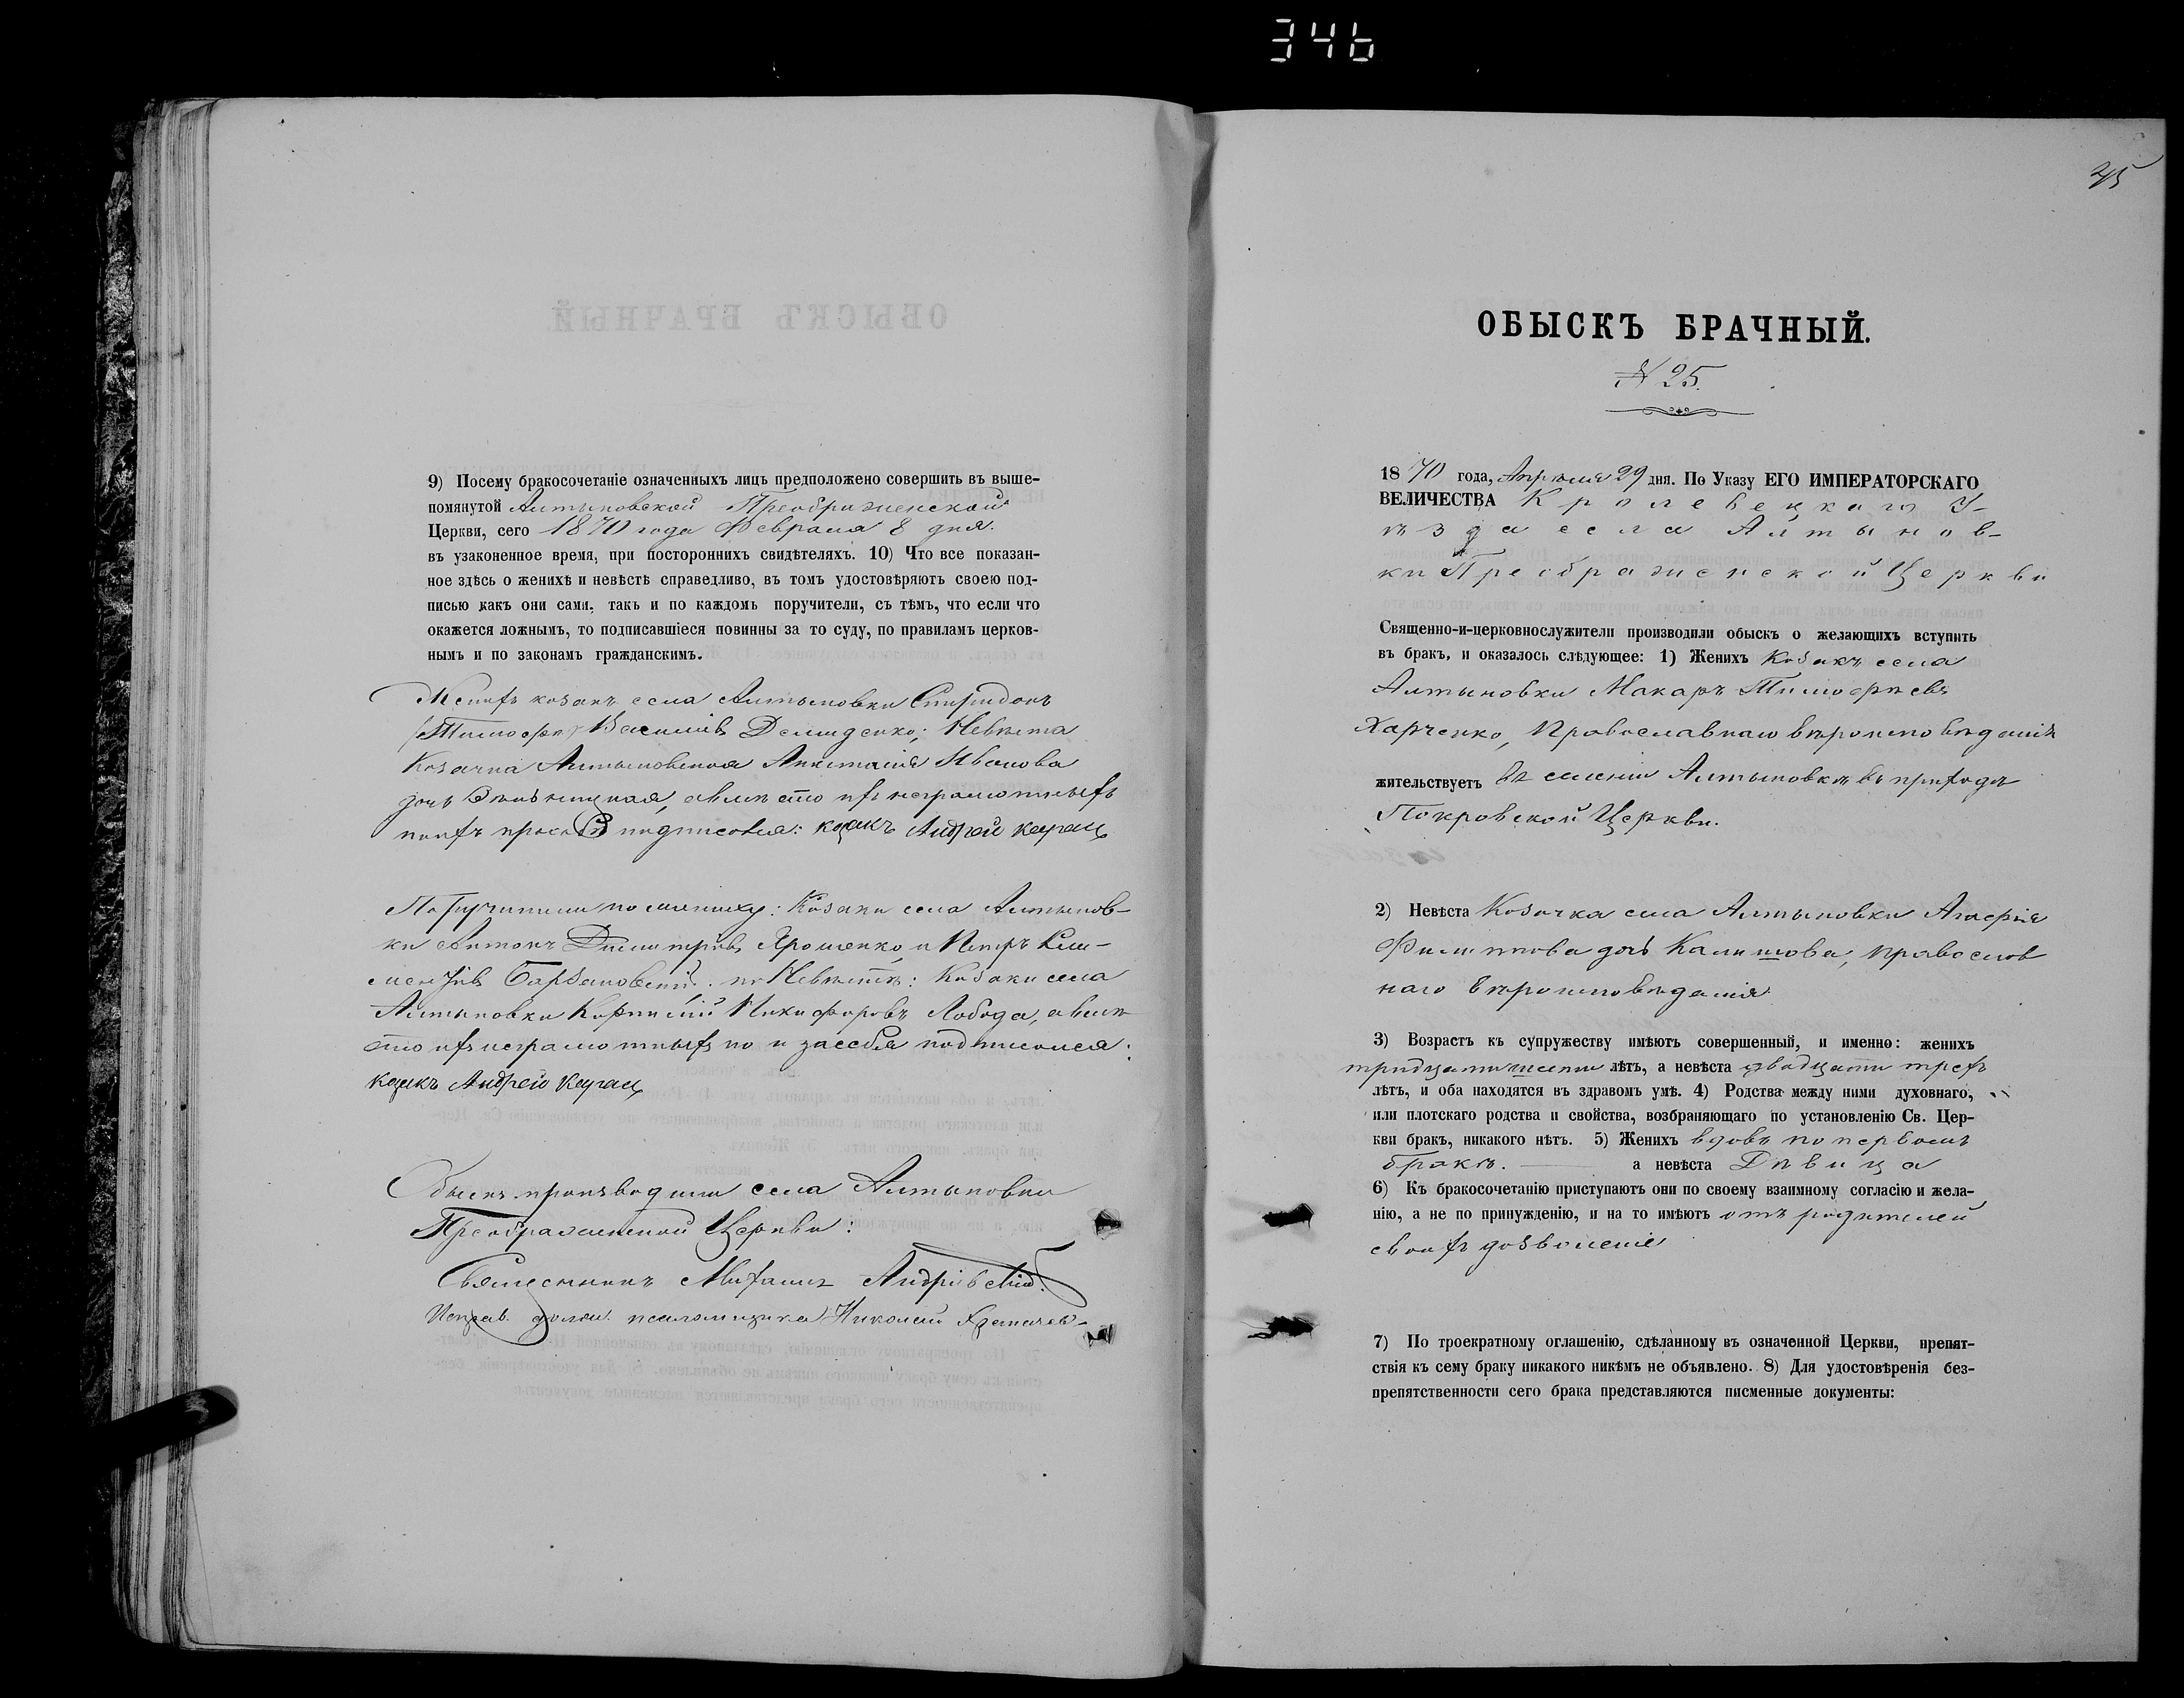 346
9) Посему бракосочетаніе означенныхъ лицъ предположено совершить въ выше-
помянутой Алтыновской Преображенской
Церкви, сего 1870 года Февраля 8 дня.
въ узаконенное время, при постороннихъ свидѣтеляхъ. 10) Что все показан-
ное здѣсь о женихѣ и невѣстѣ справедливо, въ томъ удостовѣряютъ своею под-
писью какъ они сами, такъ и по каждомъ поручители, съ тѣмъ, что если что
окажется ложнымъ, то подписавшіеся повинны за то суду, по правиламъ церков-
нымъ и по законамъ гражданскимъ.
Женихъ козакъ села Алтыновки Спиридонъ
Василіевъ Демиденко; Невѣста
Козачка Алтыновская Иванова
дочь а вмѣсто ихъ неграмотныхъ
по ихъ прозьбѣ подписался: козакъ Андрей
Поручители по жениху: Козаки села Алтынов-
ки Антонъ Димитріевъ Ярошенко и Петръ Кли-
ментіевъ по Невѣстѣ: Козаки села
Алтыновки Корнилій Никифоровъ Лобода, а вмѣ-
сто ихъ неграмотныхъ но и за себя подписался:
козакъ Андрей
Обыскъ производили села Алтыновки
Преображенской Церкви:
Священникъ Михаилъ Андріевскій
Исправ. должн. псаломщика Николай
25
ОБЫСКЪ БРАЧНЫЙ.
№ 25.
1870 года, Апрѣля 29 дня. По Указу ЕГО ИМПЕРАТОРСКАГО
ВЕЛИЧЕСТВА Кролевецкаго У-
ѣзда села Алтынов-
ки Преображенской Церкви
Священно-и-церковнослужители производили обыскъ о желающихъ вступить
въ бракъ, и оказалось слѣдующее: 1) Женихъ Козакъ села
Алтыновки Макаръ Тимофѣевъ
Харченко, Православнаго вѣроисповѣданія
жительствуетъ въ селеніи Алтыновкѣ въ приходѣ
Покровской Церкви.
2) Невѣста Козачка села Алтыновки Агафія
Филиппова дочь Калишова, православ
наго вѣроисповѣданія
3) Возрастъ къ супружеству имѣютъ совершенный, и именно: женихъ
тридцати шести лѣтъ, а невѣста двадцати трехъ
лѣтъ, и оба находятся въ здравомъ умѣ. 4) Родства между ними духовнаго,
или плотскаго родства и свойства, возбраняющаго по установленію Св. Цер-
кви бракъ, никакого нѣтъ. 5) Женихъ вдовъ по первомъ
бракѣ. а невѣста Дѣвица
6) Къ бракосочетанію приступаютъ они по своему взаимному согласію и жела-
нію, а не по принужденію, и на то имѣютъ отъ родителей
своихъ дозволеніе
7) По троекратному оглашенію, сдѣланному въ означенной Церкви, препят-
ствія къ сему браку никакого никѣмъ не объявлено. 8) Для удостовѣренія без-
препятственности сего брака представляются писменные документы: